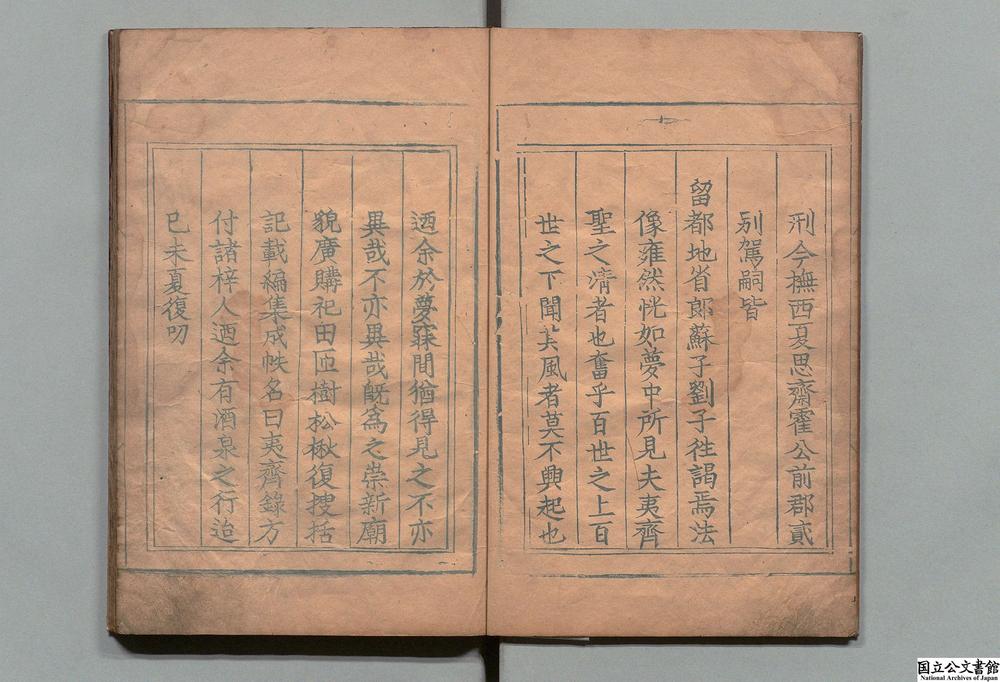 刑今撫西夏思齋霍公前郡貳
别駕嗣皆
留都地省郎蘇子劉子徃謁焉法
像雍然恍如夢中所見夫夷齊
聖之清者也奮乎百世之上百
世之下聞其風者莫不興起也
迺余於夢寐間猶得見之不亦
異哉不亦異哉旣為之崇新廟
貌廣購祀田匝樹松楸復搜括
記載編集成帙名曰夷齊錄方
付諸梓人迺余有酒泉之行迨
巳未夏復叨
国立公文書館
National Archives of Japan